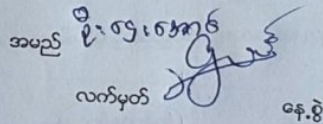 အမည် ဦးဌေးအောင်
လက်မှတ်
နေ့စွဲ